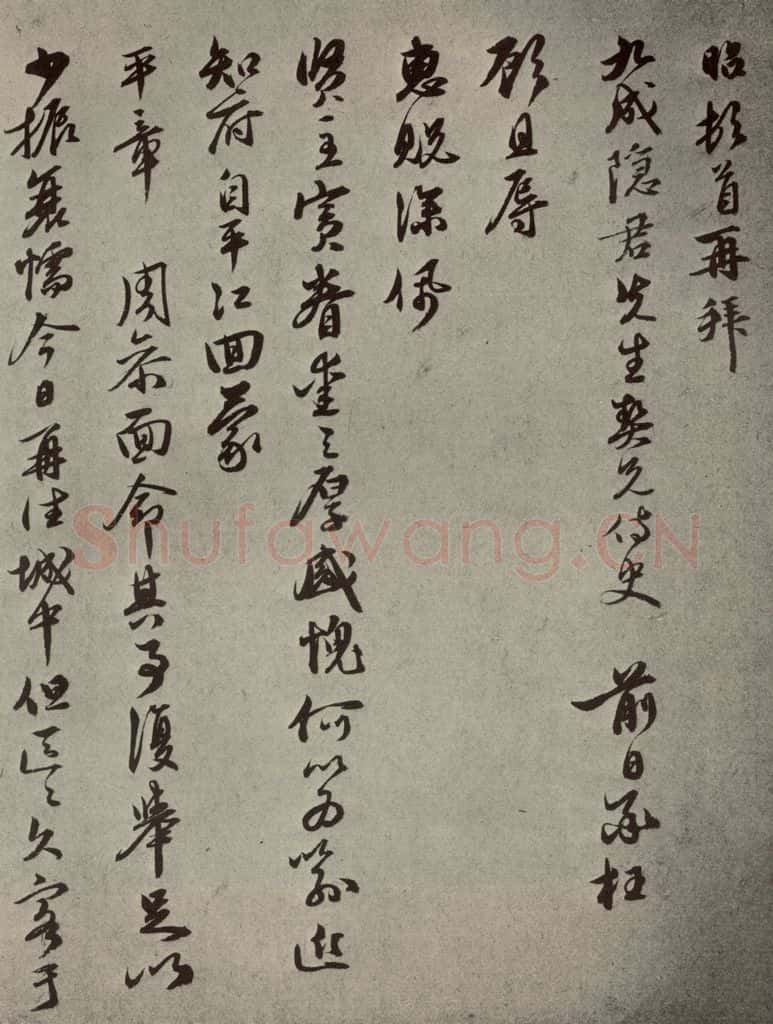 昭頓首再拜
九成隱君先生契兄侍史 前日承枉
顧且辱
惠貺深佩
賢主賓眷愛之厚感愧何以為喻近
知府自平江回蒙
平章 周宗面命其子復舉足以
少振衰懦今日再往城中但區區久客于
Shufawang.CN